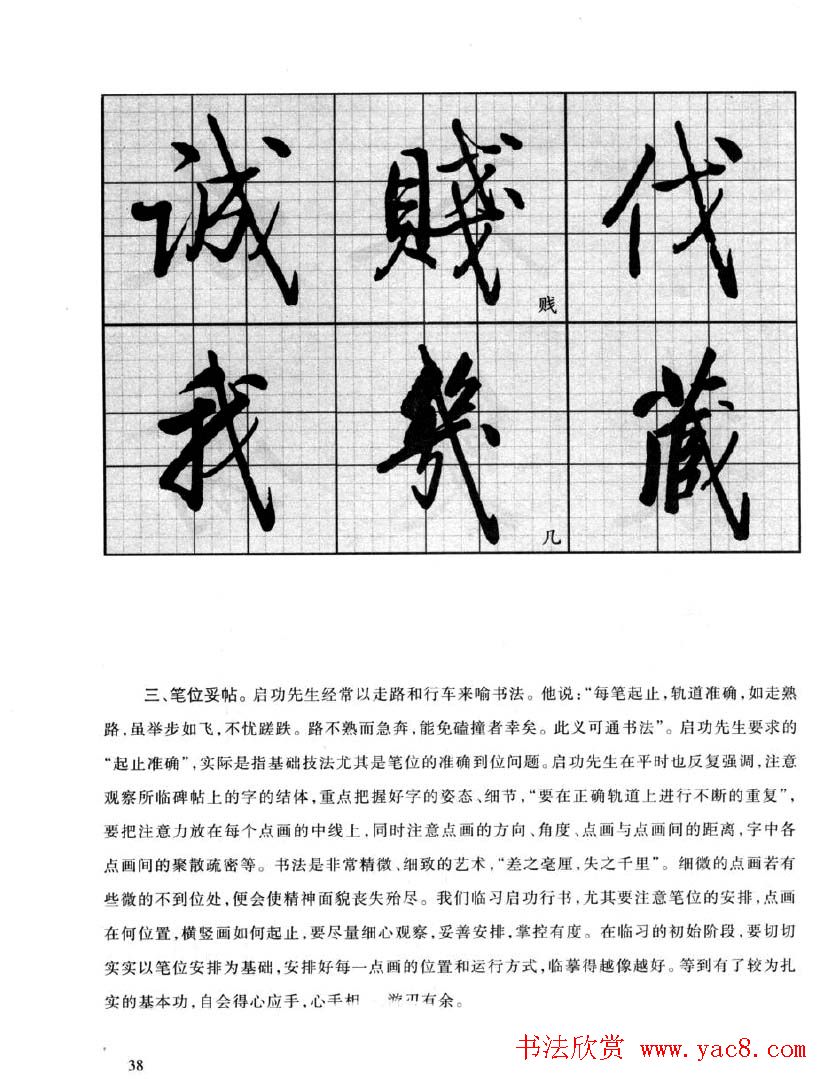 誠 賤 伐
贱
我 幾 藏
几
三、笔位妥帖。启功先生经常以走路和行车来喻书法。他说：“每笔起止，轨道准确，如走熟
路，虽举步如飞，不忧蹉跌。路不熟而急奔，能免磕撞者幸矣。此义可通书法”。启功先生要求的
“起止准确”，实际是指基础技法尤其是笔位的准确到位问题。启功先生在平时也反复强调，注意
观察所临碑帖上的字的结体，重点把握好字的姿态、细节，“要在正确轨道上进行不断的重复”，
要把注意力放在每个点画的中线上，同时注意点画的方向、角度、点画与点画间的距离，字中各
点画间的聚散疏密等。书法是非常精微、细致的艺术，“差之毫厘，失之千里”。细微的点画若有
些微的不到位处，便会使精神面貌丧失殆尽。我们临习启功行书，尤其要注意笔位的安排，点画
在何位置，横竖画如何起止，要尽量细心观察，妥善安排，掌控有度。在临习的初始阶段，要切切
实实以笔位安排为基础，安排好每一点画的位置和运行方式，临摹得越像越好。等到有了较为扎
实的基本功，自会得心应手，心手相 游刃有余。
38
书法欣赏 www.yac8.com